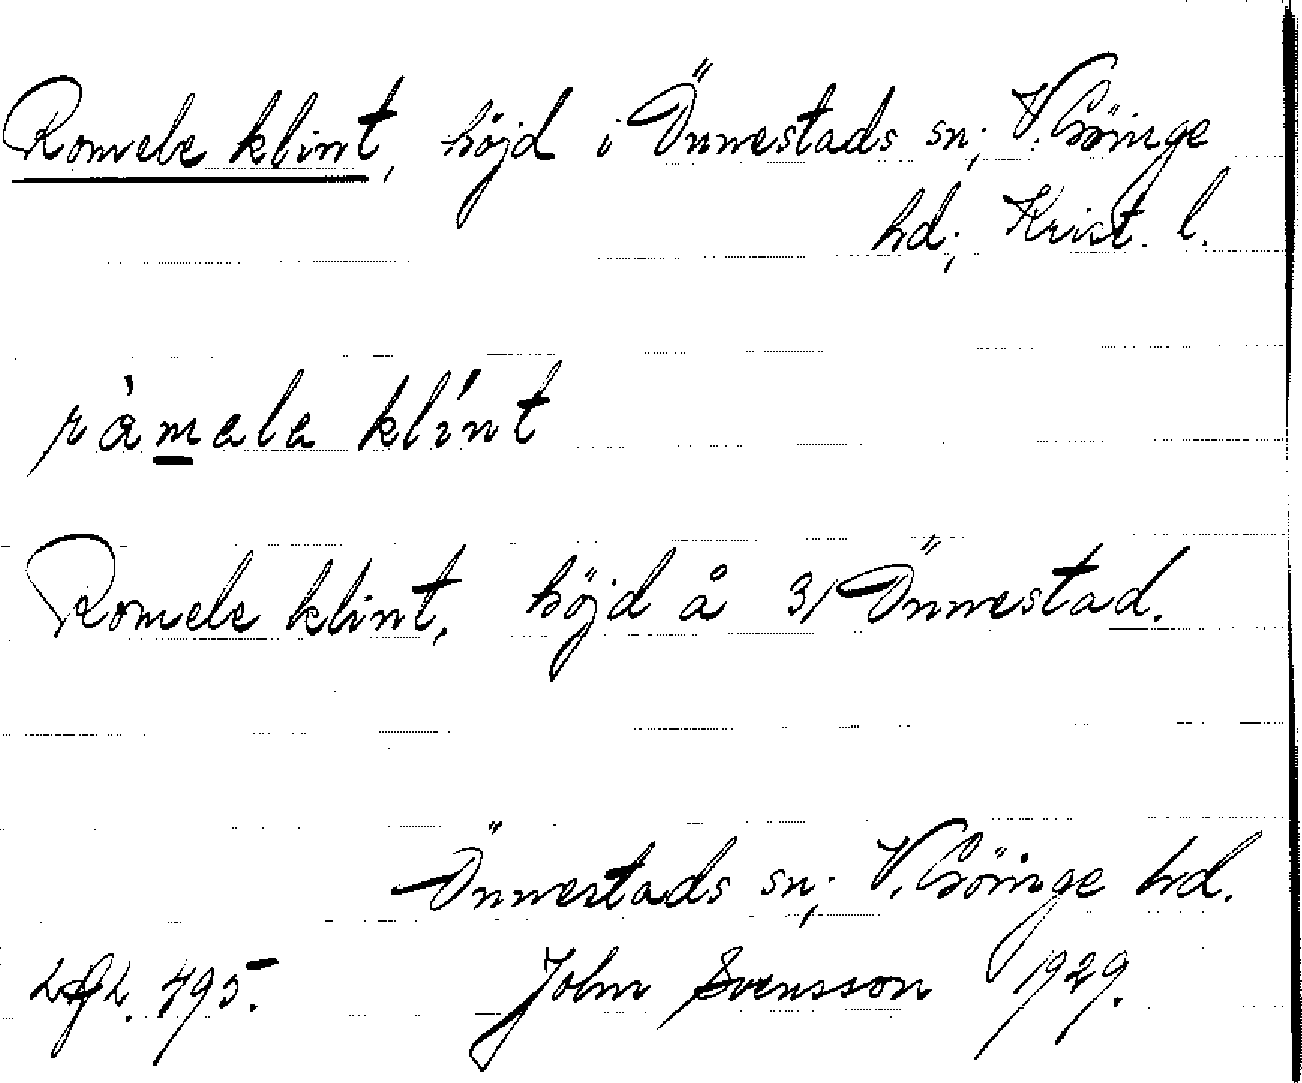 Romele klint, höjd i Önnestads sn; V. Göinge
hd; Krist. l.
ràmala klínt
Romele klint, höjd å 31 Önnestad.
Önnestads sn; V. Göinge hd.
495. John Svensson 1929.